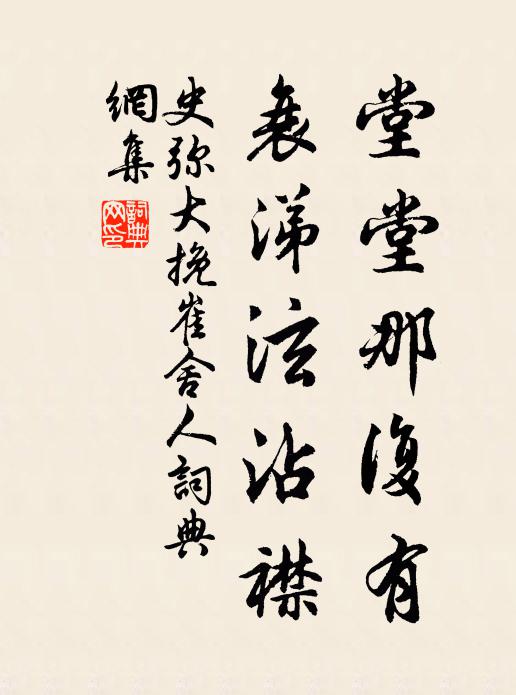 堂堂那復有
衰涕泫沾襟
史弥大挽崔舍人詞典
網集
詞典網印